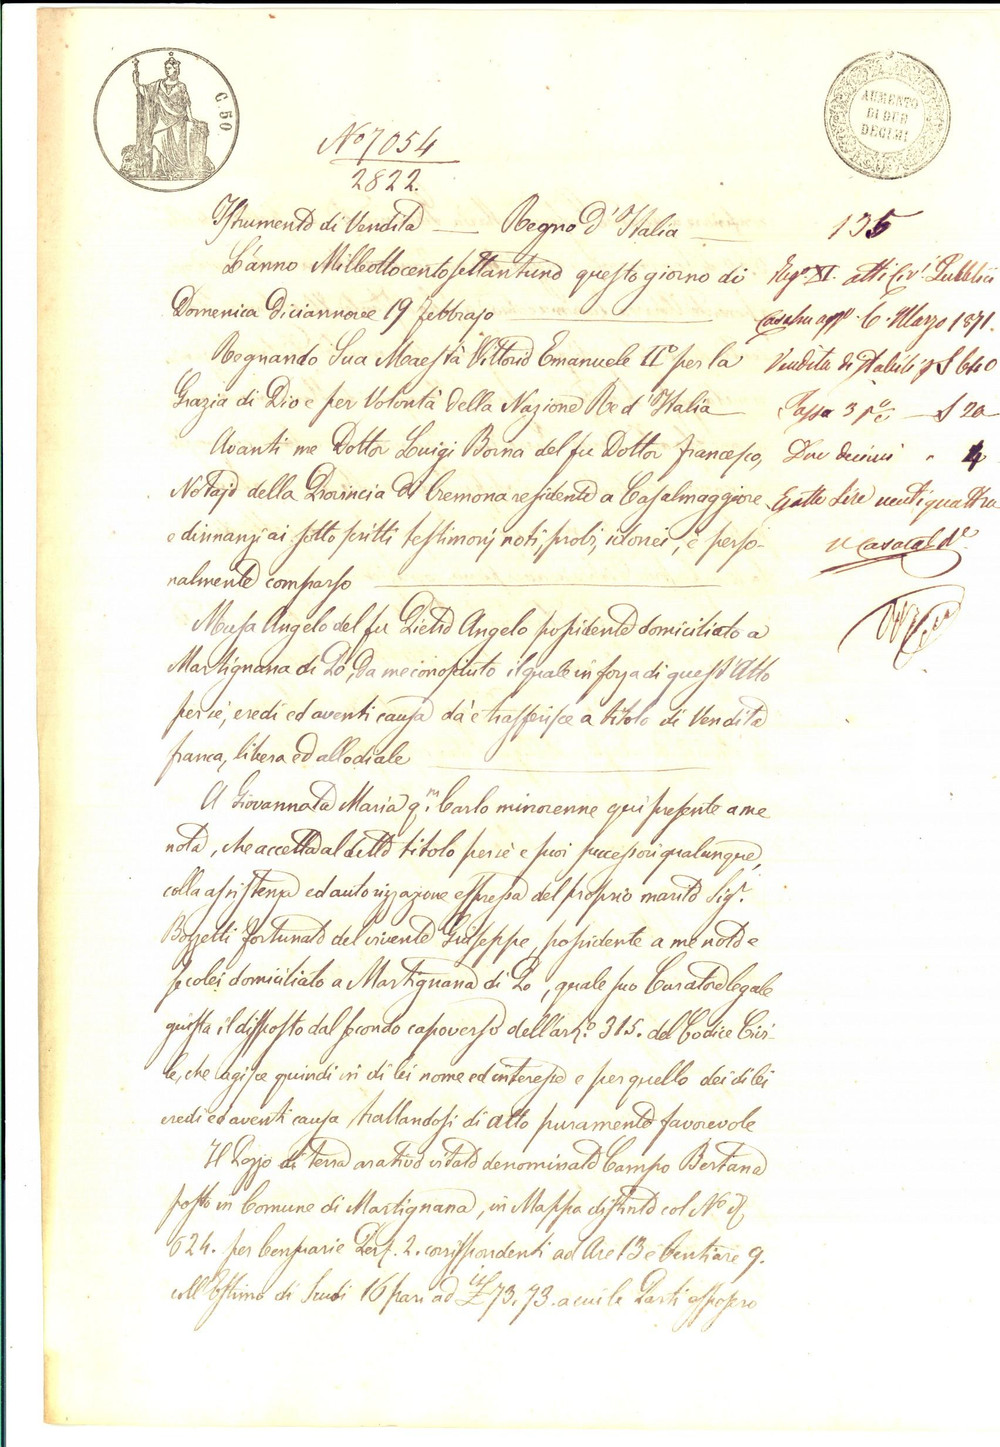 C. 50
AUMENTO
DI DUE
DECIMI
No 7054
2822.
Istrumento di Vendita — Regno D'Italia —
L'anno Milleottocentosettantuno questo giorno di
Domenica diciannove 19 febbrajo
Regnando Sua Maestà Vittorio Emanuele II° per la
Grazia di Dio e per Volontà della Nazione Re d'Italia —
Avanti me Dottor Luigi Borna del fu Dottor francesco,
Notajo della Provincia di Cremona residente a Casalmaggiore
e dinnanzi ai sottoscritti testimonj noti, probi, idonei, è perso-
nalmente comparso
Musa Angelo del fu Pietro Angelo possidente domiciliato a
Martignana di Po, da me conosciuto il quale in forza di quest'Atto
per sè, eredi ed aventi causa dà e trasferisce a titolo di Vendita
franca, libera ed allodiale
A Giovannata Maria qm. Carlo minorenne qui presente a me
nota, che accetta al detto titolo per sè e suoi successori qualunque,
colla assistenza ed autorizzazione espressa del proprio marito Sigr.
Bozzetti fortunato del vivente Giuseppe, possidente a me noto e
seco lei domiciliato a Martignana di Po, quale suo Curatore legale
giusta il disposto dal secondo capoverso dell'art.° 315. del Codice Civi-
le, che agisce quindi in di lei nome ed interesse e per quello dei di lei
eredi ed aventi causa trattandosi di atto puramente favorevole
Il Pezzo di terra arativo vitato denominato Campo Bertana
posto in Comune di Martignana, in Mappa distinto col No
624. per Censuarie Pert. 2. corrispondenti ad Are 13 e Centiare 9.
coll'Estimo di Scudi 16 pari ad it £ 73,73. a cui le Parti esposero
135
Reg.° XI. atti Civ. Pubblici
6 Marzo 1871.
Vendita di stabili p £ 640
Tassa 3 p% — £ 20
Due decimi " 4
Esatte Lire ventiquattro